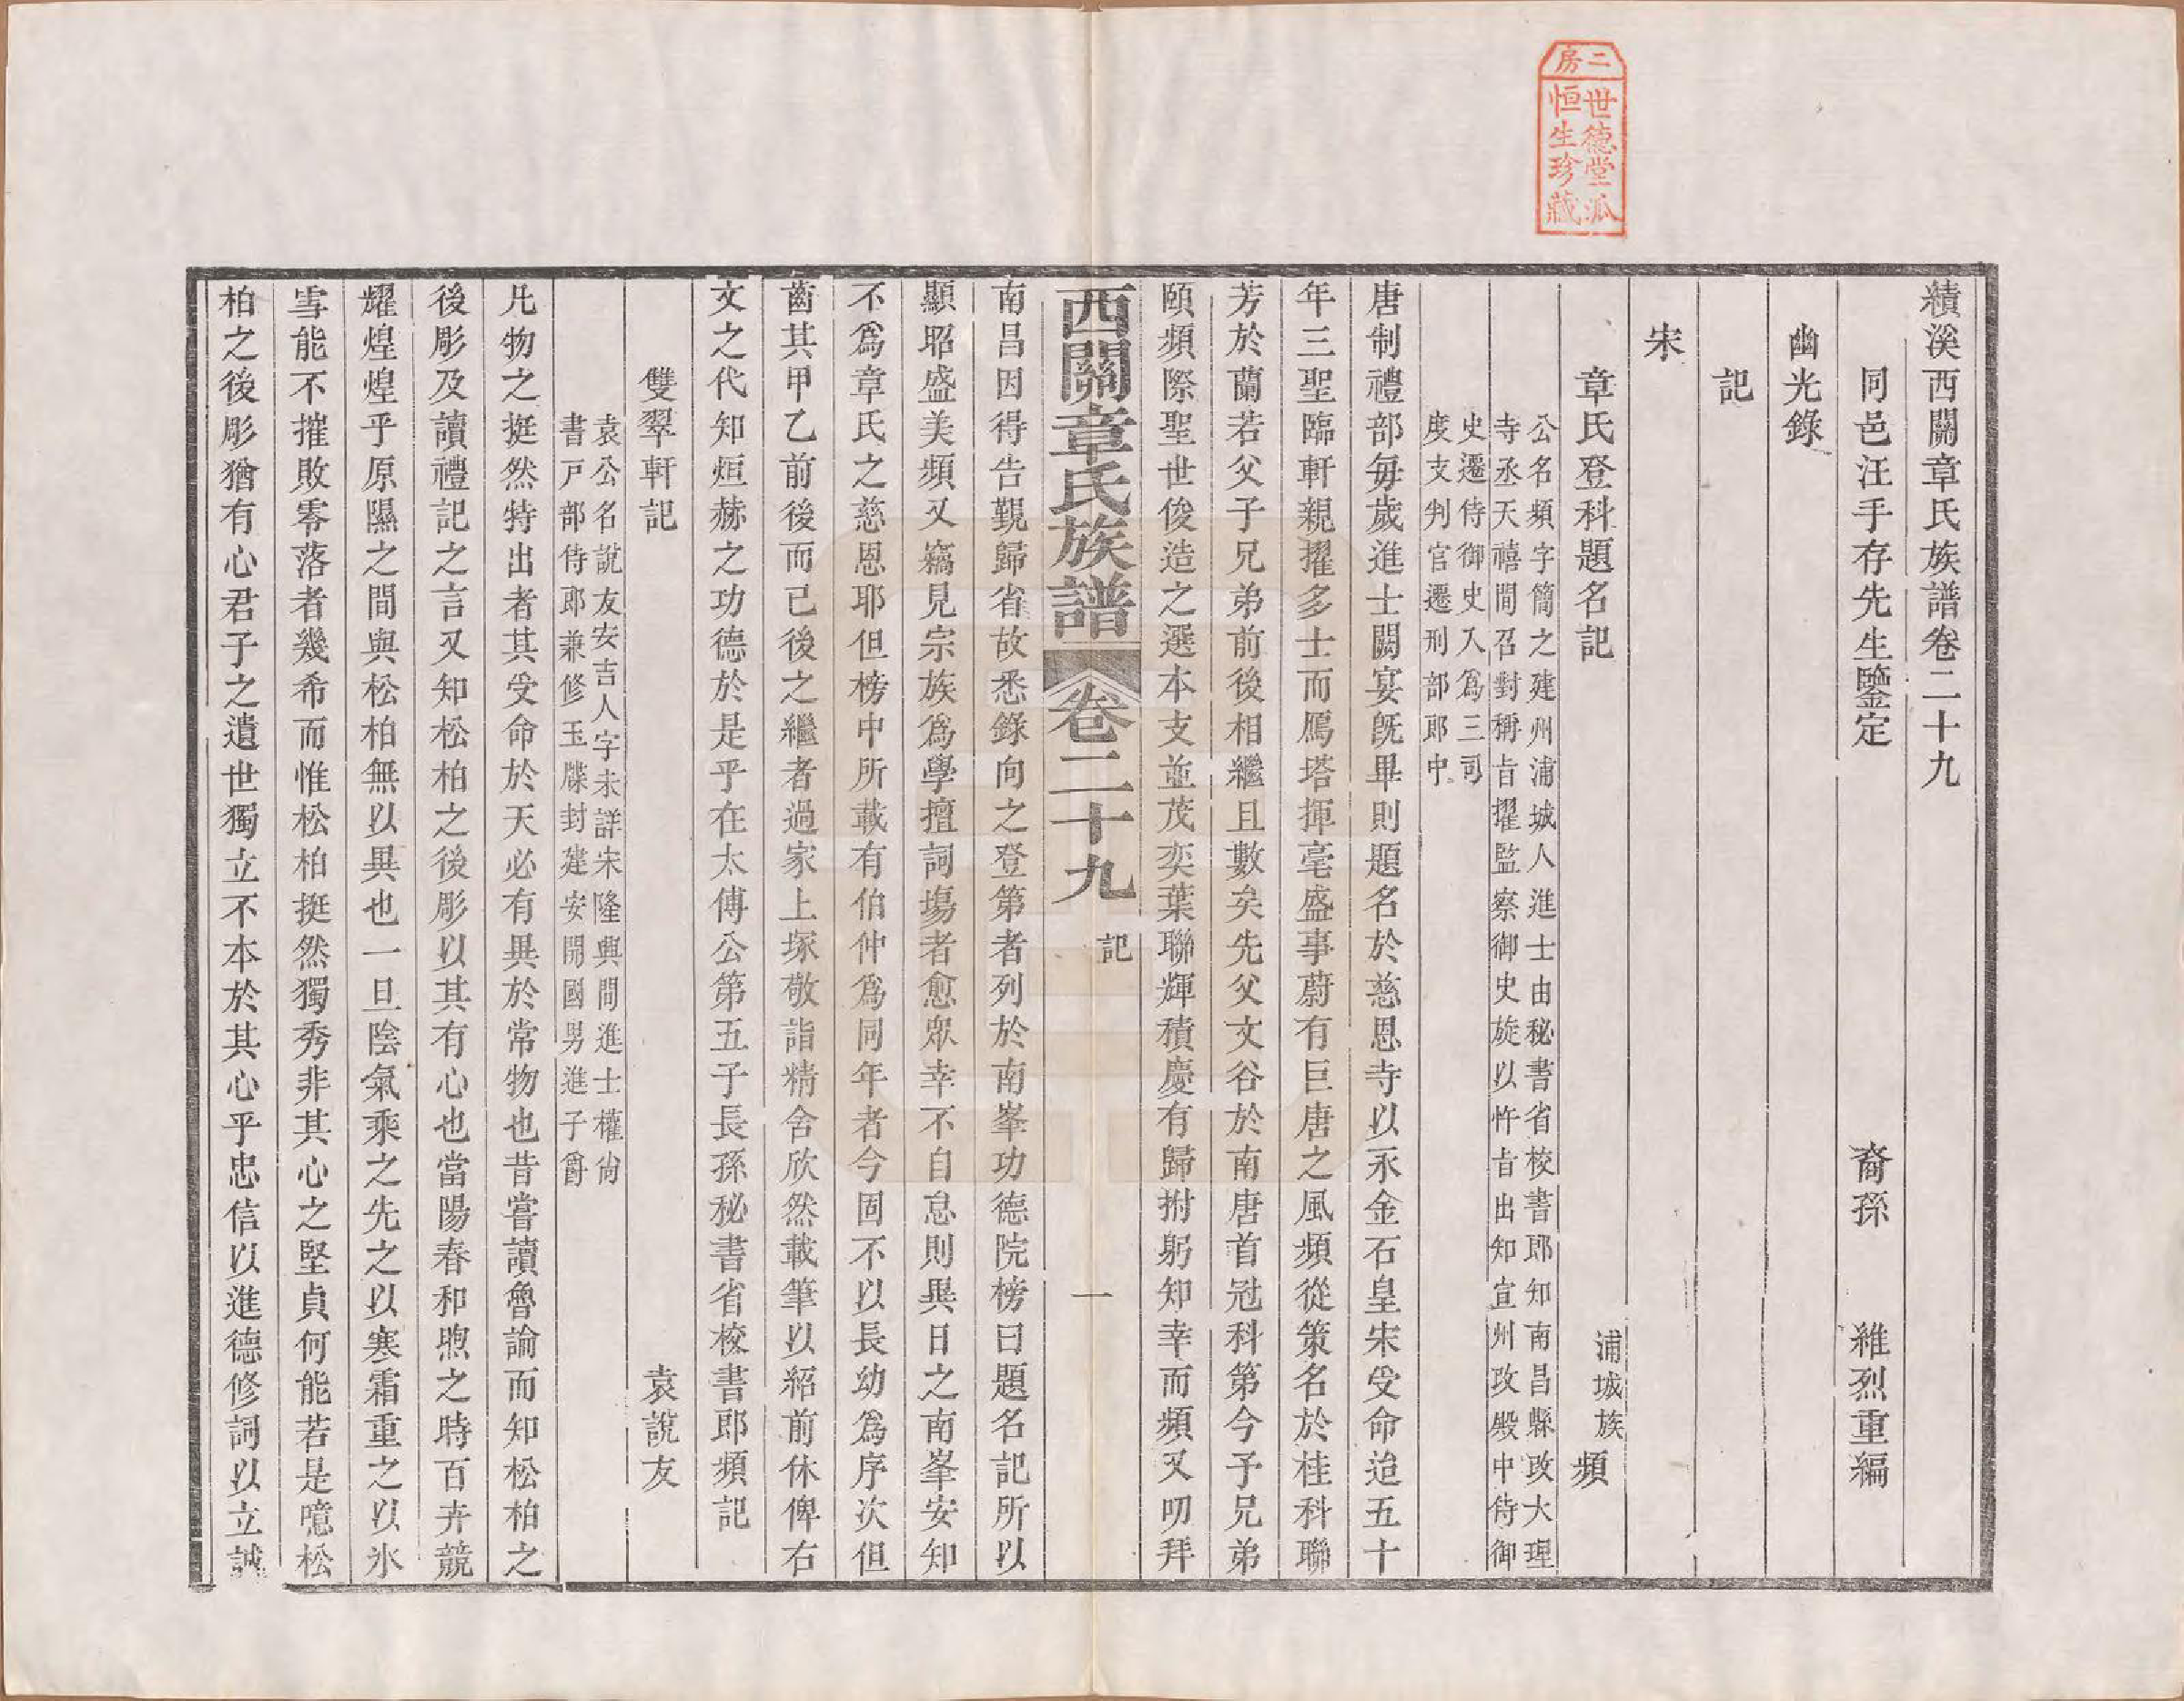 二房
世德堂派
恒生珍藏
績溪西關章氏族譜卷二十九
同邑汪手存先生鑒定 裔孫 維烈重編
幽光錄
記
宋
章氏登科題名記 浦城族 頻
公名頻字簡之建州浦城人進士由秘書省校書郎知南昌縣改大理
寺丞天禧間召對稱旨擢監察御史旋以忤旨出知宣州改殿中侍御
史遷侍御史入為三司
度支判官遷刑部郎中
唐制禮部每歲進士闕宴旣畢則題名於慈恩寺以永金石皇宋受命迨五十
年三聖臨軒親擢多士而鴈塔揮毫盛事蔚有巨唐之風頻從策名於桂科聯
芳於蘭若父子兄弟前後相繼且數矣先父文谷於南唐首冠科第今予兄弟
頤頻際聖世俊造之選本支並茂奕葉聯輝積慶有歸拊躬知幸而頻又叨拜
西關章氏族譜 卷二十九 記 一
南昌因得告覲歸省故悉錄向之登第者列於南峯功德院榜曰題名記所以
顯昭盛美頻又竊見宗族為學擅詞塲者愈眾幸不自怠則異日之南峯安知
不為章氏之慈恩耶但榜中所載有伯仲為同年者今固不以長幼為序次但
齒其甲乙前後而已後之繼者過家上塚敬詣精舍欣然載筆以紹前休俾右
文之代知烜赫之功德於是乎在太傅公第五子長孫秘書省校書郎頻記
雙翠軒記 袁說友
袁公名說友安吉人字未詳宋隆興間進士權尚
書戸部侍郎兼修玉牒封建安開國男進子爵
凡物之挺然特出者其受命於天必有異於常物也昔嘗讀魯論而知松柏之
後彫及讀禮記之言又知松柏之後彫以其有心也當陽春和煦之時百卉競
耀煌煌乎原隰之間與松柏無以異也一旦陰氣乘之先之以寒霜重之以氷
雪能不摧敗零落者幾希而惟松柏挺然獨秀非其心之堅貞何能若是噫松
柏之後彫猶有心君子之遺世獨立不本於其心乎忠信以進德修詞以立誠